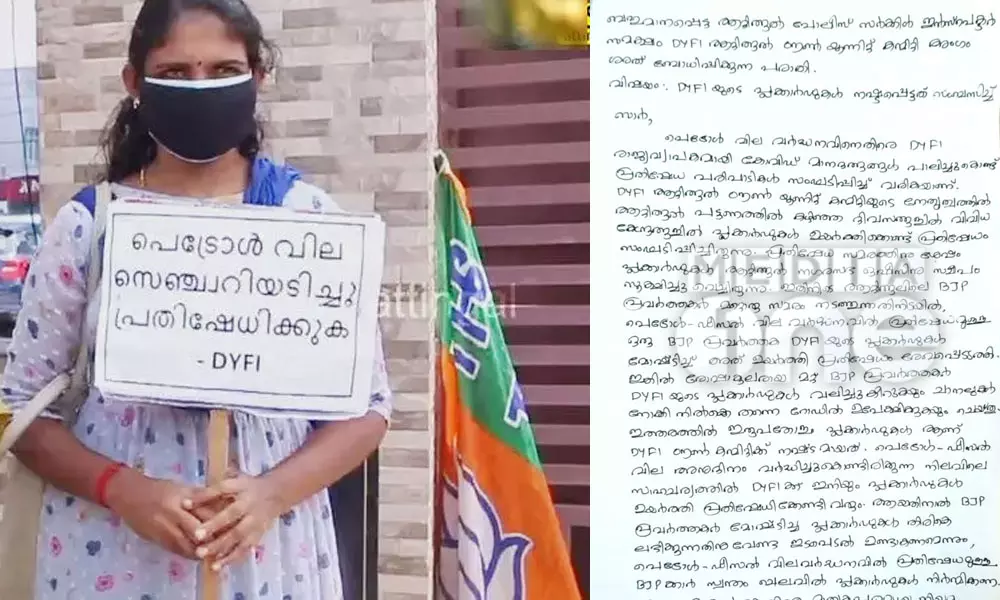 പെട്രോൾ വില
സെഞ്ച്വറിയടിച്ചു
പ്രതിഷേധിക്കുക
- DYFI
attingal
ബഹുമാനപ്പെട്ട ആറ്റിങ്ങൽ പോലീസ് സർക്കിൾ ഇൻസ്പെക്ടർ
സമക്ഷം DYFI ആറ്റിങ്ങൽ ടൗൺ യൂണിറ്റ് കമ്മിറ്റി അംഗം
ബോധിപ്പിക്കുന്ന പരാതി.
വിഷയം: DYFI യുടെ പ്ലക്കാർഡുകൾ നഷ്ടപ്പെട്ടത് സംബന്ധിച്ച്
സാർ,
പെട്രോൾ വില വർദ്ധനവിനെതിരെ DYFI
രാജ്യവ്യാപകമായി കോവിഡ് മാനദണ്ഡങ്ങൾ പാലിച്ചുകൊണ്ട്
പ്രതിഷേധ പരിപാടികൾ സംഘടിപ്പിച്ച് വരികയാണ്.
DYFI ആറ്റിങ്ങൽ ടൗൺ യൂണിറ്റ് കമ്മിറ്റിയുടെ നേതൃത്വത്തിൽ
ആറ്റിങ്ങൽ പട്ടണത്തിൽ കഴിഞ്ഞ ദിവസങ്ങളിൽ വിവിധ
കേന്ദ്രങ്ങളിൽ പ്ലക്കാർഡുകൾ ഉയർത്തിക്കൊണ്ട് പ്രതിഷേധം
സംഘടിപ്പിച്ചിരുന്നു. പ്രതിഷേധ സമരത്തിനു ശേഷം
പ്ലക്കാർഡുകൾ ആറ്റിങ്ങൽ നഗരസഭ സമീപം
സൂക്ഷിച്ചു വെച്ചിരുന്നു. BJP
പ്രവർത്തകർ മറ്റൊരു സമരം നടത്തുന്നതിനിടയിൽ,
പെട്രോൾ-ഡീസൽ വില വർദ്ധനവിൽ പ്രതിഷേധമുള്ള
ഒരു BJP പ്രവർത്തക DYFI യുടെ പ്ലക്കാർഡുകൾ
മോഷ്ടിച്ച് അത് ഉയർത്തി പ്രതിഷേധം രേഖപ്പെടുത്തി.
ഇതിൽ രോഷാകുലരായ മറ്റ് BJP പ്രവർത്തകർ
DYFI യുടെ പ്ലക്കാർഡുകൾ വലിച്ചുകീറുകയും ചാനലുകൾ
നോക്കി നിൽകെ തന്നെ റോഡിൽ ഉപേക്ഷിക്കുകയും ചെയ്തു.
ഇത്തരത്തിൽ ഇരുപതോളം പ്ലക്കാർഡുകൾ ആണ്
DYFI ടൗൺ കമ്മിറ്റിക്ക് നഷ്ടമായത്. പെട്രോൾ-ഡീസൽ
വില അനുദിനം വർദ്ധിച്ചുകൊണ്ടിരിക്കുന്ന നിലവിലെ
സാഹചര്യത്തിൽ DYFI ക്ക് ഇനിയും പ്ലക്കാർഡുകൾ
ഉയർത്തി പ്രതിഷേധിക്കേണ്ടി വരും. ആയതിനാൽ BJP
പ്രവർത്തകർ മോഷ്ടിച്ച പ്ലക്കാർഡുകൾ തിരികെ
ലഭിക്കുന്നതിനു വേണ്ട ഇടപെടൽ ഉണ്ടാകണമെന്നും,
പെട്രോൾ-ഡീസൽ വിലവർദ്ധനവിൽ പ്രതിഷേധമുള്ള
BJPക്കാർ സ്വന്തം ചിലവിൽ പ്ലക്കാർഡുകൾ നിർമ്മിക്കണ
MEDIA
one